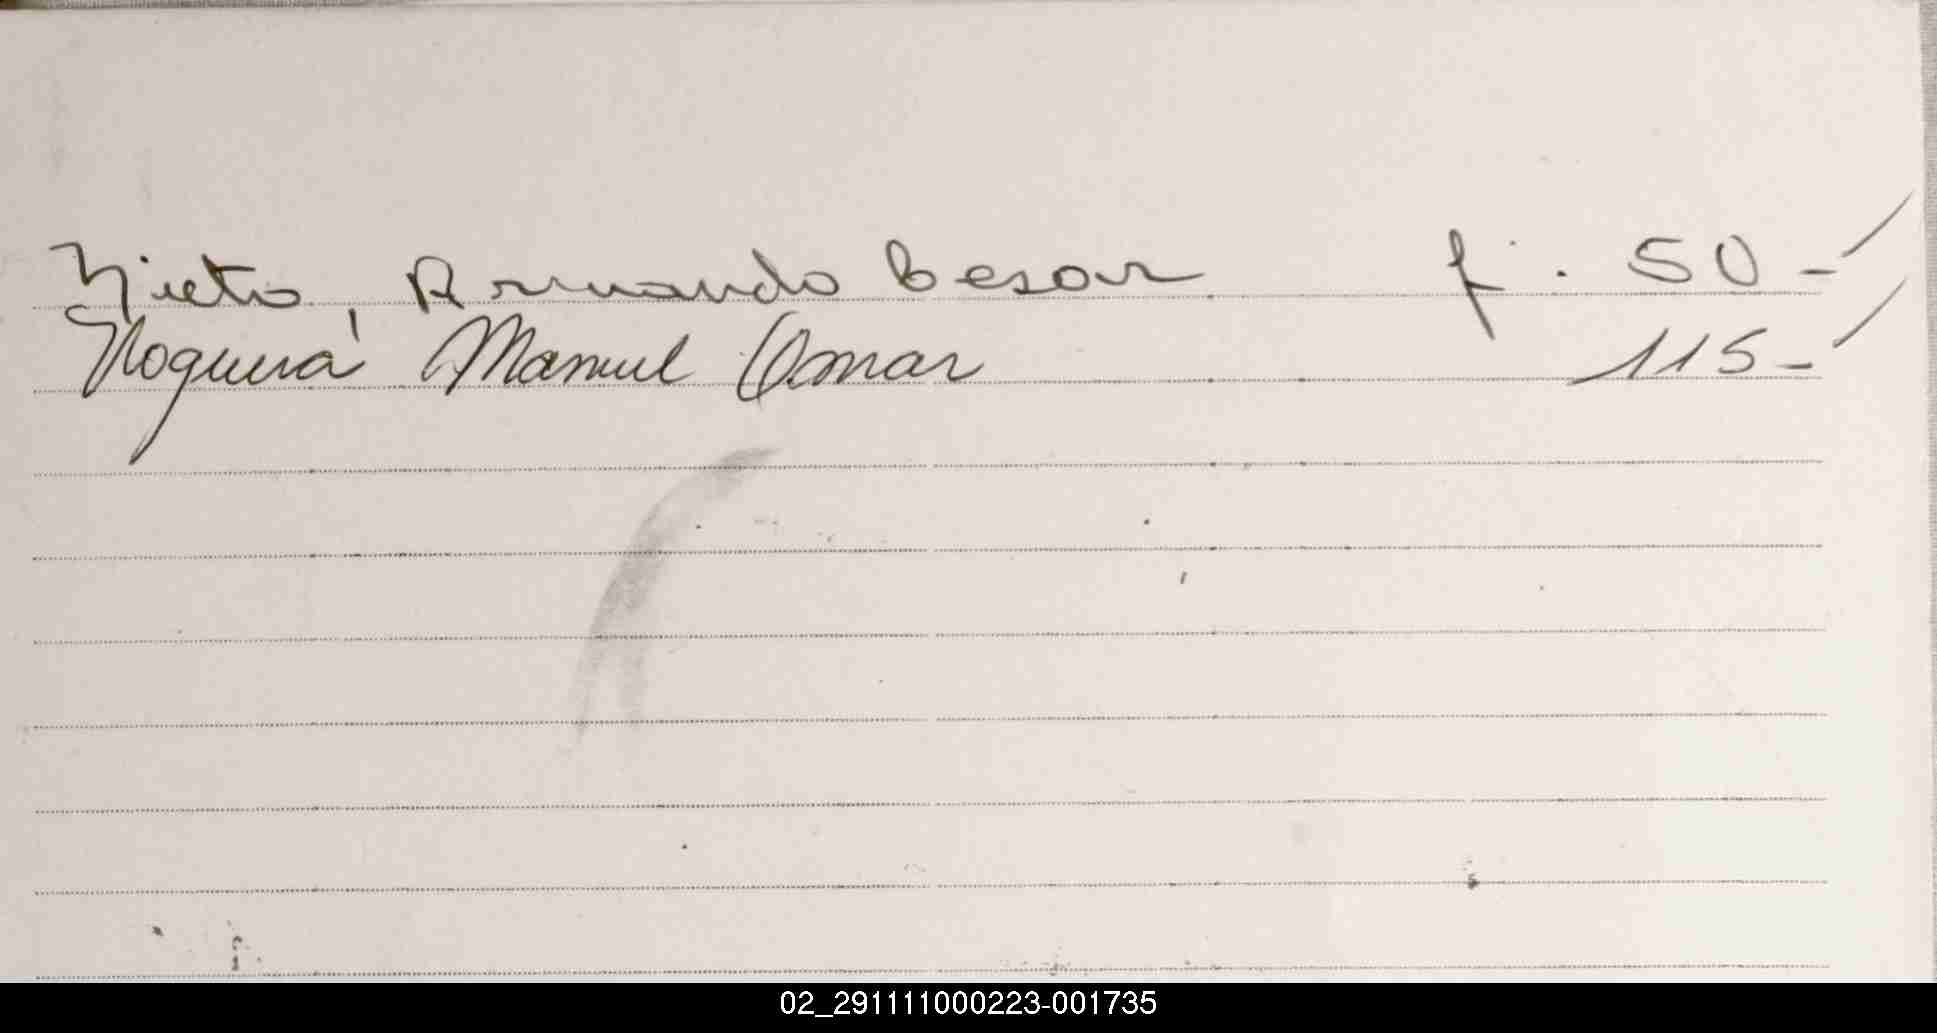 Nieto, Armando Cesar f. 50-
Noguera Manuel Omar 115-
02_291111000223-001735